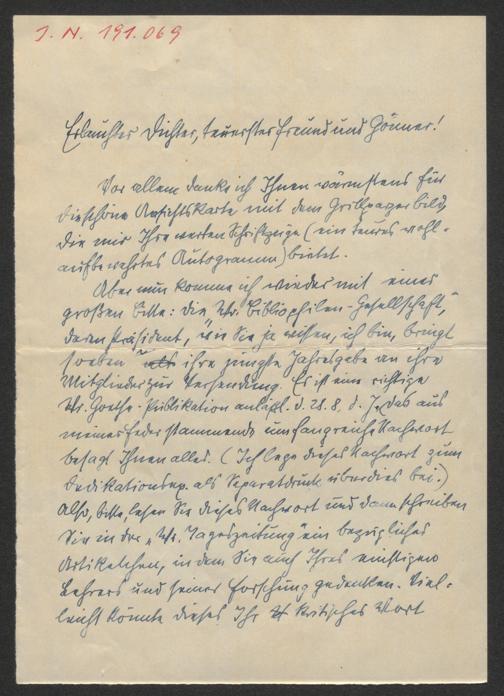 J. N. 191.069
Erlauchter Dichter, teuerster Freund und Gönner!
Vor allem danke ich Ihnen wärmstens für
die schöne Ansichtskarte mit dem Grillparzerbild,
die mir Ihre werten Schriftzüge (ein teures wohl-
aufbewahrtes Autogramm) bietet.
Aber nun komme ich wieder mit einer
großen Bitte: die Wr. Bibliophilen-Gesellschaft,
deren Präsident, wie Sie ja wissen, ich bin, bringt
soeben als ihre jüngste Jahresgabe an ihre
Mitglieder zur Versendung. Es ist eine richtige
Wr. Goethe-Publikation anläßl. d. 28. 8. d. J., das aus
meiner Feder stammende umfangreiche Nachwort
besagt Ihnen alles. (Ich lege dieses Nachwort zum
Dedikationsex. als Separatdruck überdies bei.)
Also, bitte, lesen Sie dieses Nachwort und dann schreiben
Sie in der „Wr. Tageszeitung" ein bezügliches
Artikelchen, in dem Sie auch Ihres einstigen
Lehrers und seiner Forschung gedenken. Viel-
leicht könnte dieses Ihr kritisches Wort